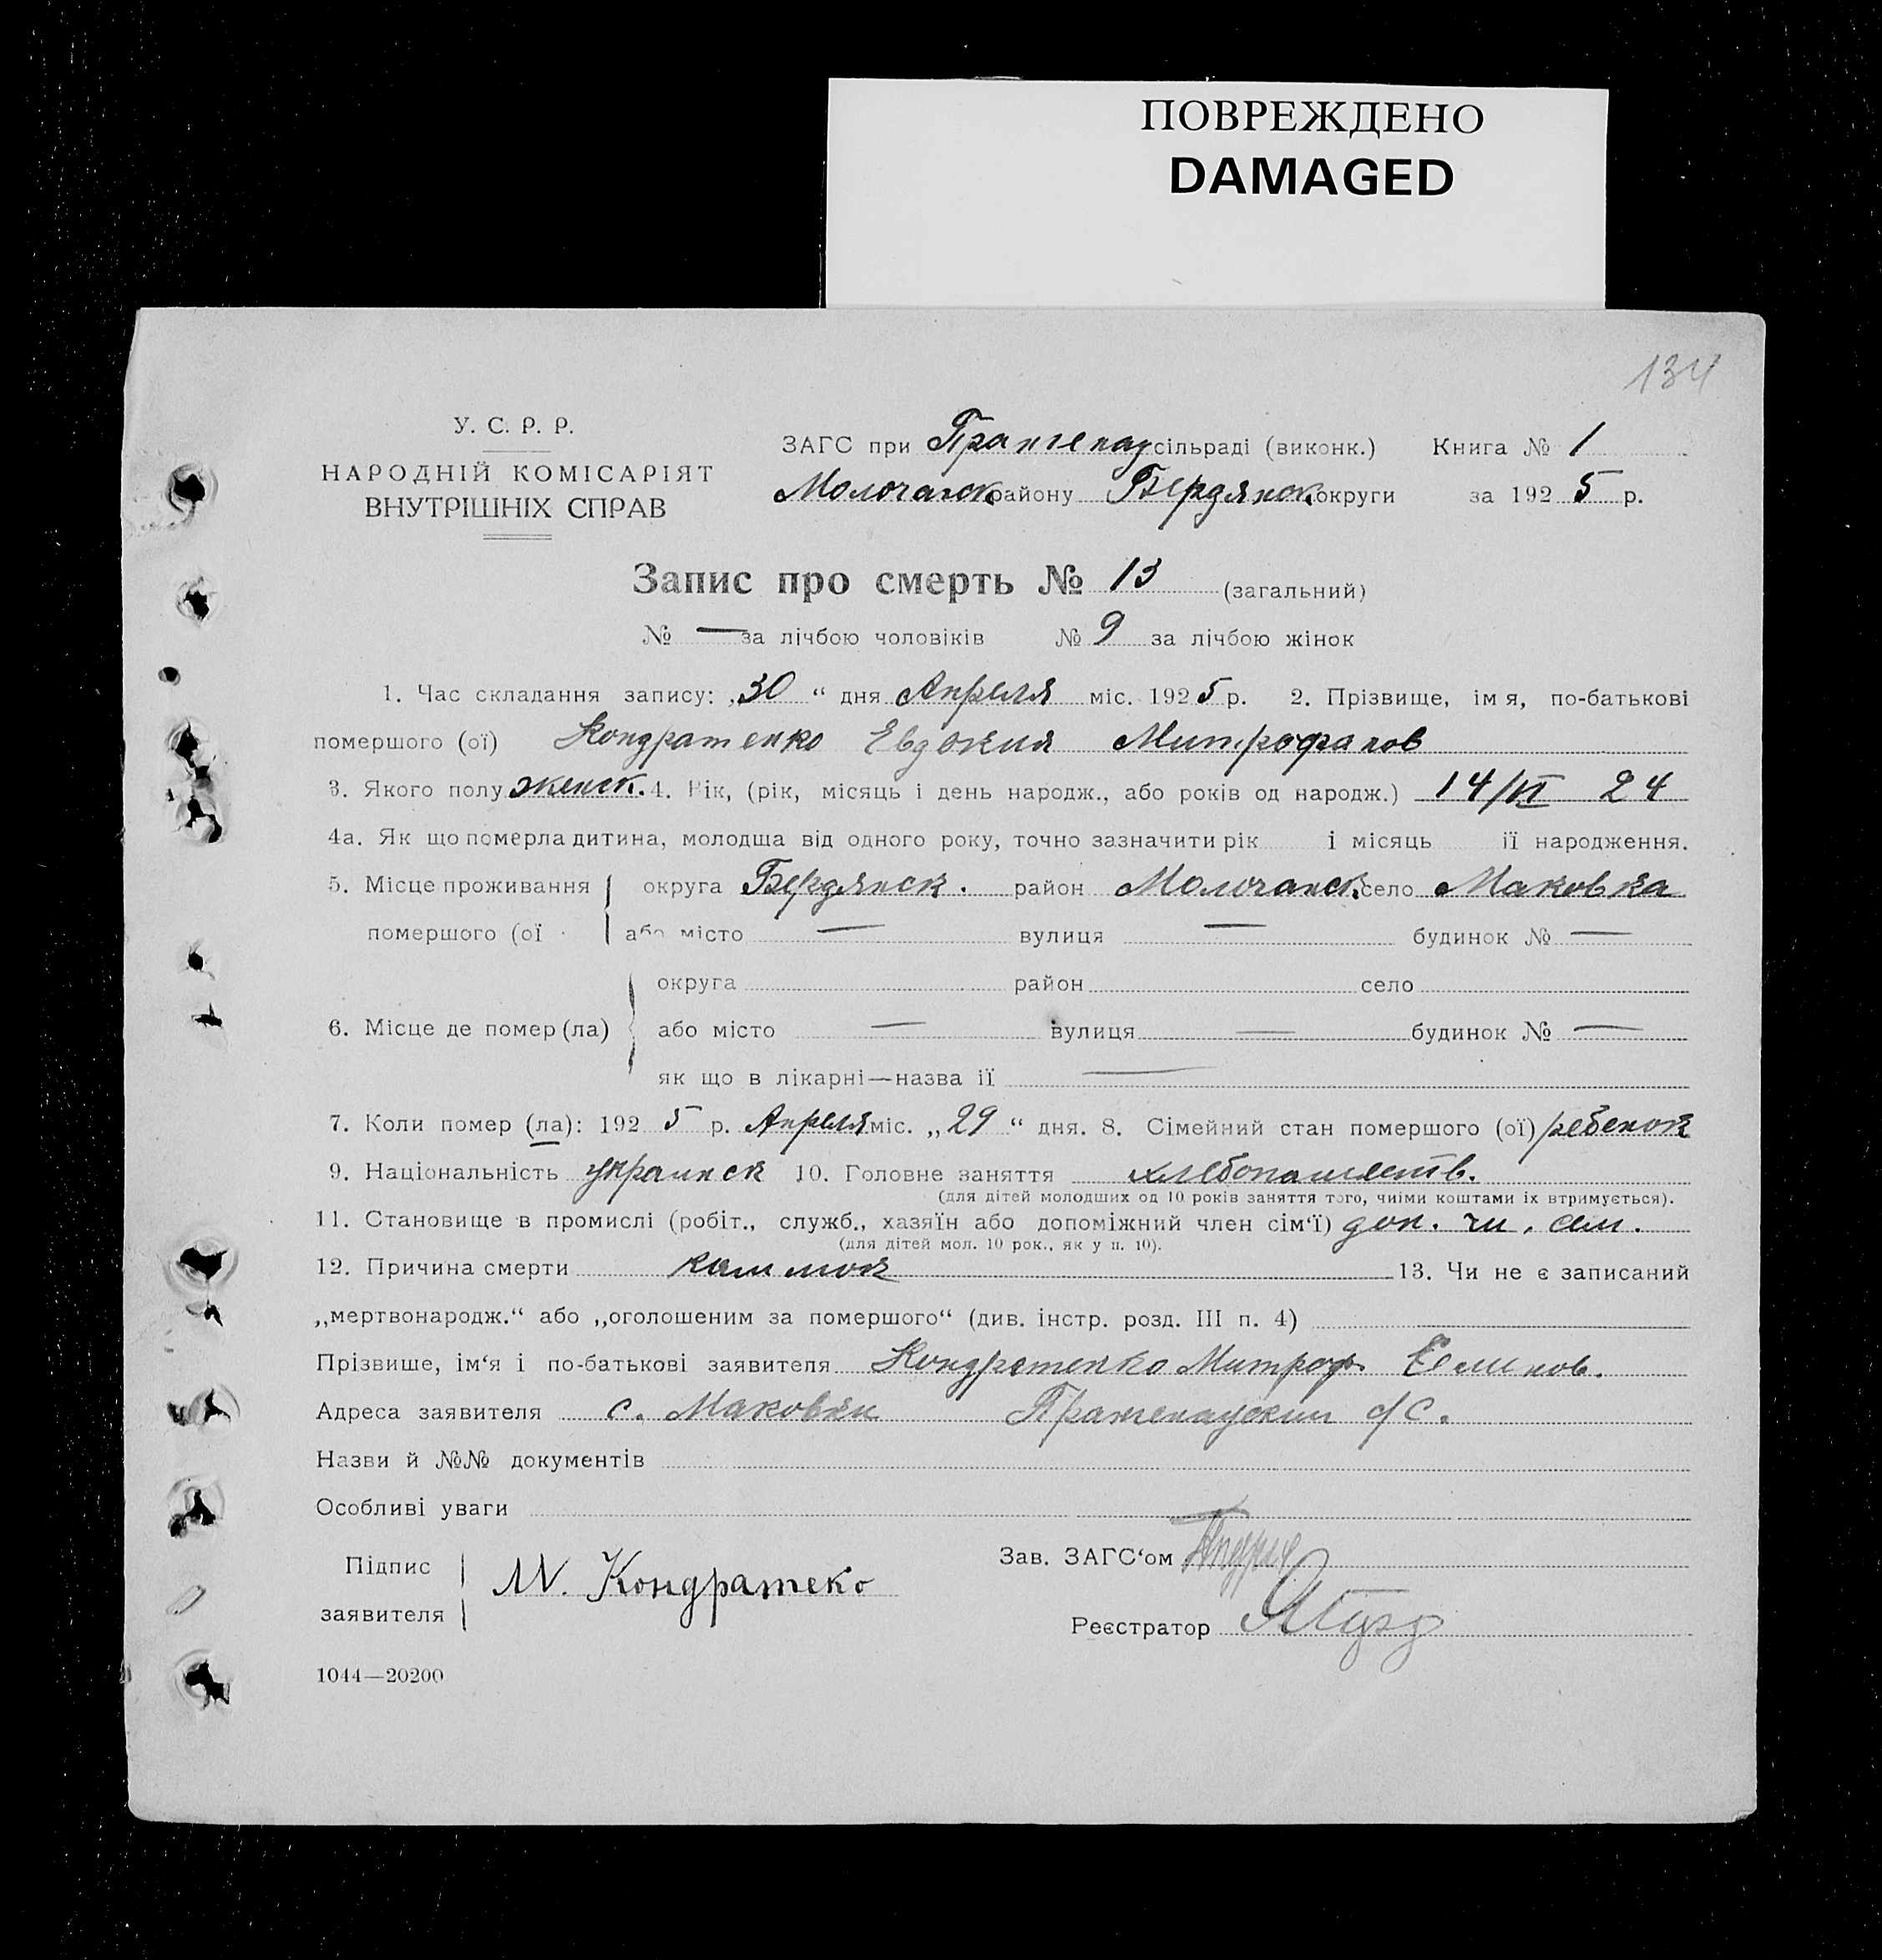 ПОВРЕЖДЕНО
DAMAGED
134
У. С. Р. Р.
НАРОДНІЙ КОМІСАРІЯТ
ВНУТРІШНІХ СПРАВ
ЗАГС при Прангенау сільраді (виконк.) Книга № 1
Молочанск району Бердянск округи за 1925 р.
Запис про смерть № 13 (загальний)
№ — за лічбою чоловіків № 9 за лічбою жінок
1. Час складання запису: „30“ дня Апреля міс. 1925 р. 2. Прізвище, імя, по-батькові
помершого (ої) Кондратенко Евдокия Митрофанов
3. Якого полу женск. 4. Рік, (рік, місяць і день народж., або років од народж.) 14/VI 24
4а. Як що померла дитина, молодша від одного року, точно зазначити рік і місяць її народження.
5. Місце проживання округа Бердянск. район Молочанск. село Маковка
помершого (ої або місто — вулиця — будинок № —
округа район село
6. Місце де помер (ла) або місто — вулиця — будинок № —
як що в лікарні—назва її —
7. Коли помер (ла): 1925 р. Апреля міс. „29“ дня. 8. Сімейний стан помершого (ої) ребенок
9. Національність украинск 10. Головне заняття хлебопашеств.
(для дітей молодших од 10 років заняття того, чиїми коштами їх втримується).
11. Становище в промислі (робіт., служб., хазяїн або допоміжний член сім‘ї) доп. чл. сем.
(для дітей мол. 10 рок., як у п. 10).
12. Причина смерти 13. Чи не є записаний
„мертвонародж.“ або „оголошеним за помершого“ (див. інстр. розд. III п. 4)
Прізвише, ім‘я і по-батькові заявителя Кондратенко Митроф.
Адреса заявителя с. Маковки Прангенауский с/с.
Назви й №№ документів
Особливі уваги
Підпис
заявителя
М. Кондратеко
Зав. ЗАГС‘ом
Реєстратор
1044—20200